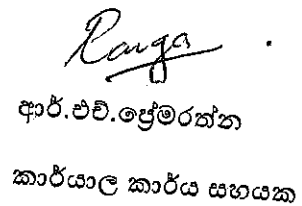 ආර්.එච්.ප්‍රේමරත්න
කාර්යාල කාර්ය සහයක